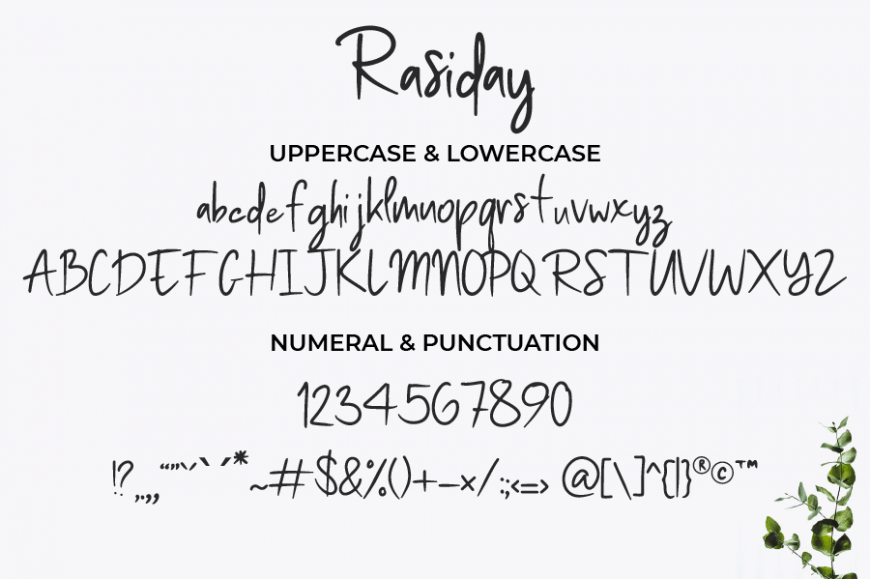 Rasiday
UPPERCASE & LOWERCASE
abcdefghijklmnopqrstuvwxyz
ABCDEFGHIJKLMNOPQRSTUVWXYZ
NUMERAL & PUNCTUATION
1234567890
!? .,„ “”‘’`´* ~#$&%()+−×/ :;<=> @[\]^{|}®©™